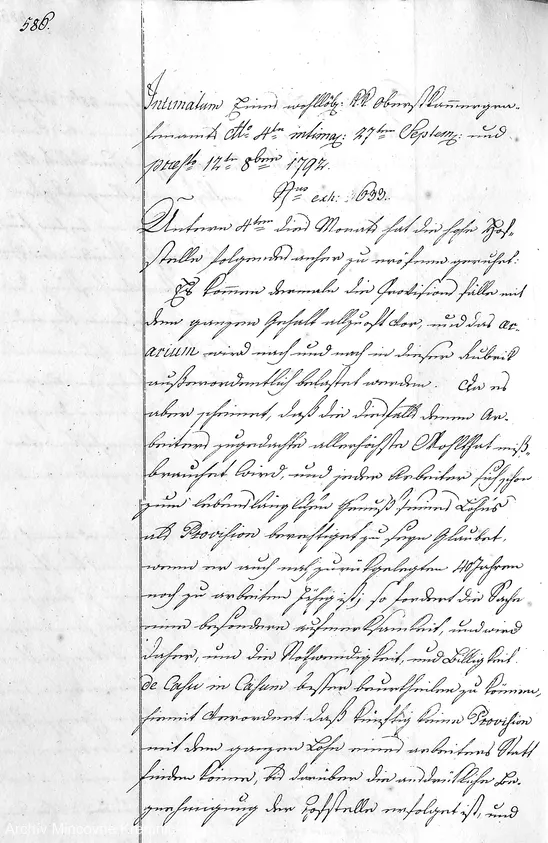 586.
Intimatum Eines wohllöb: KK Oberstkammergra-
fenamts dto 4ten intimat: 27ten Septem: und
praes: 12te 8bris 1792.
Nrus exh: 633.
Unterm 4ten dies Monats hat die hohe Hof-
stelle folgendes anher zu eröfnen geruhet:
Es kommen dermals die Provisions fälle mit
dem ganzen Gehalt allzuoft vor, und das ae-
rarium wird nach und nach in dieser Rubrik
außerordentlich belastet werden. Da es
aber scheinet, daß die diesfalls denen Ar-
beitern zugedachte allerhöchste Wohlthat miß-
brauchet wird, und jeder Arbeiter sich schon
zum lebenslänglichen Genuß seines Lohns
als Provision berechtiget zu seyn Glaubet,
wenn er auch nach zurückgelegten 40 Jahren
noch zu arbeiten fähig ist; so fordert die Sache
eine besondere aufmerksamkeit, und wird
daher, um die Nothwendigkeit, und Billigkeit
de Casu in Casum besser beurtheilen zu können,
hiemit verordnet daß künftig keine Provision
mit dem ganzen Lohn eines arbeiters Statt
finden könne, bis darüber die ausdrückliche Be-
gnehmigung der Hofstelle erfolget ist, und
Archiv Mincovne Kremnica